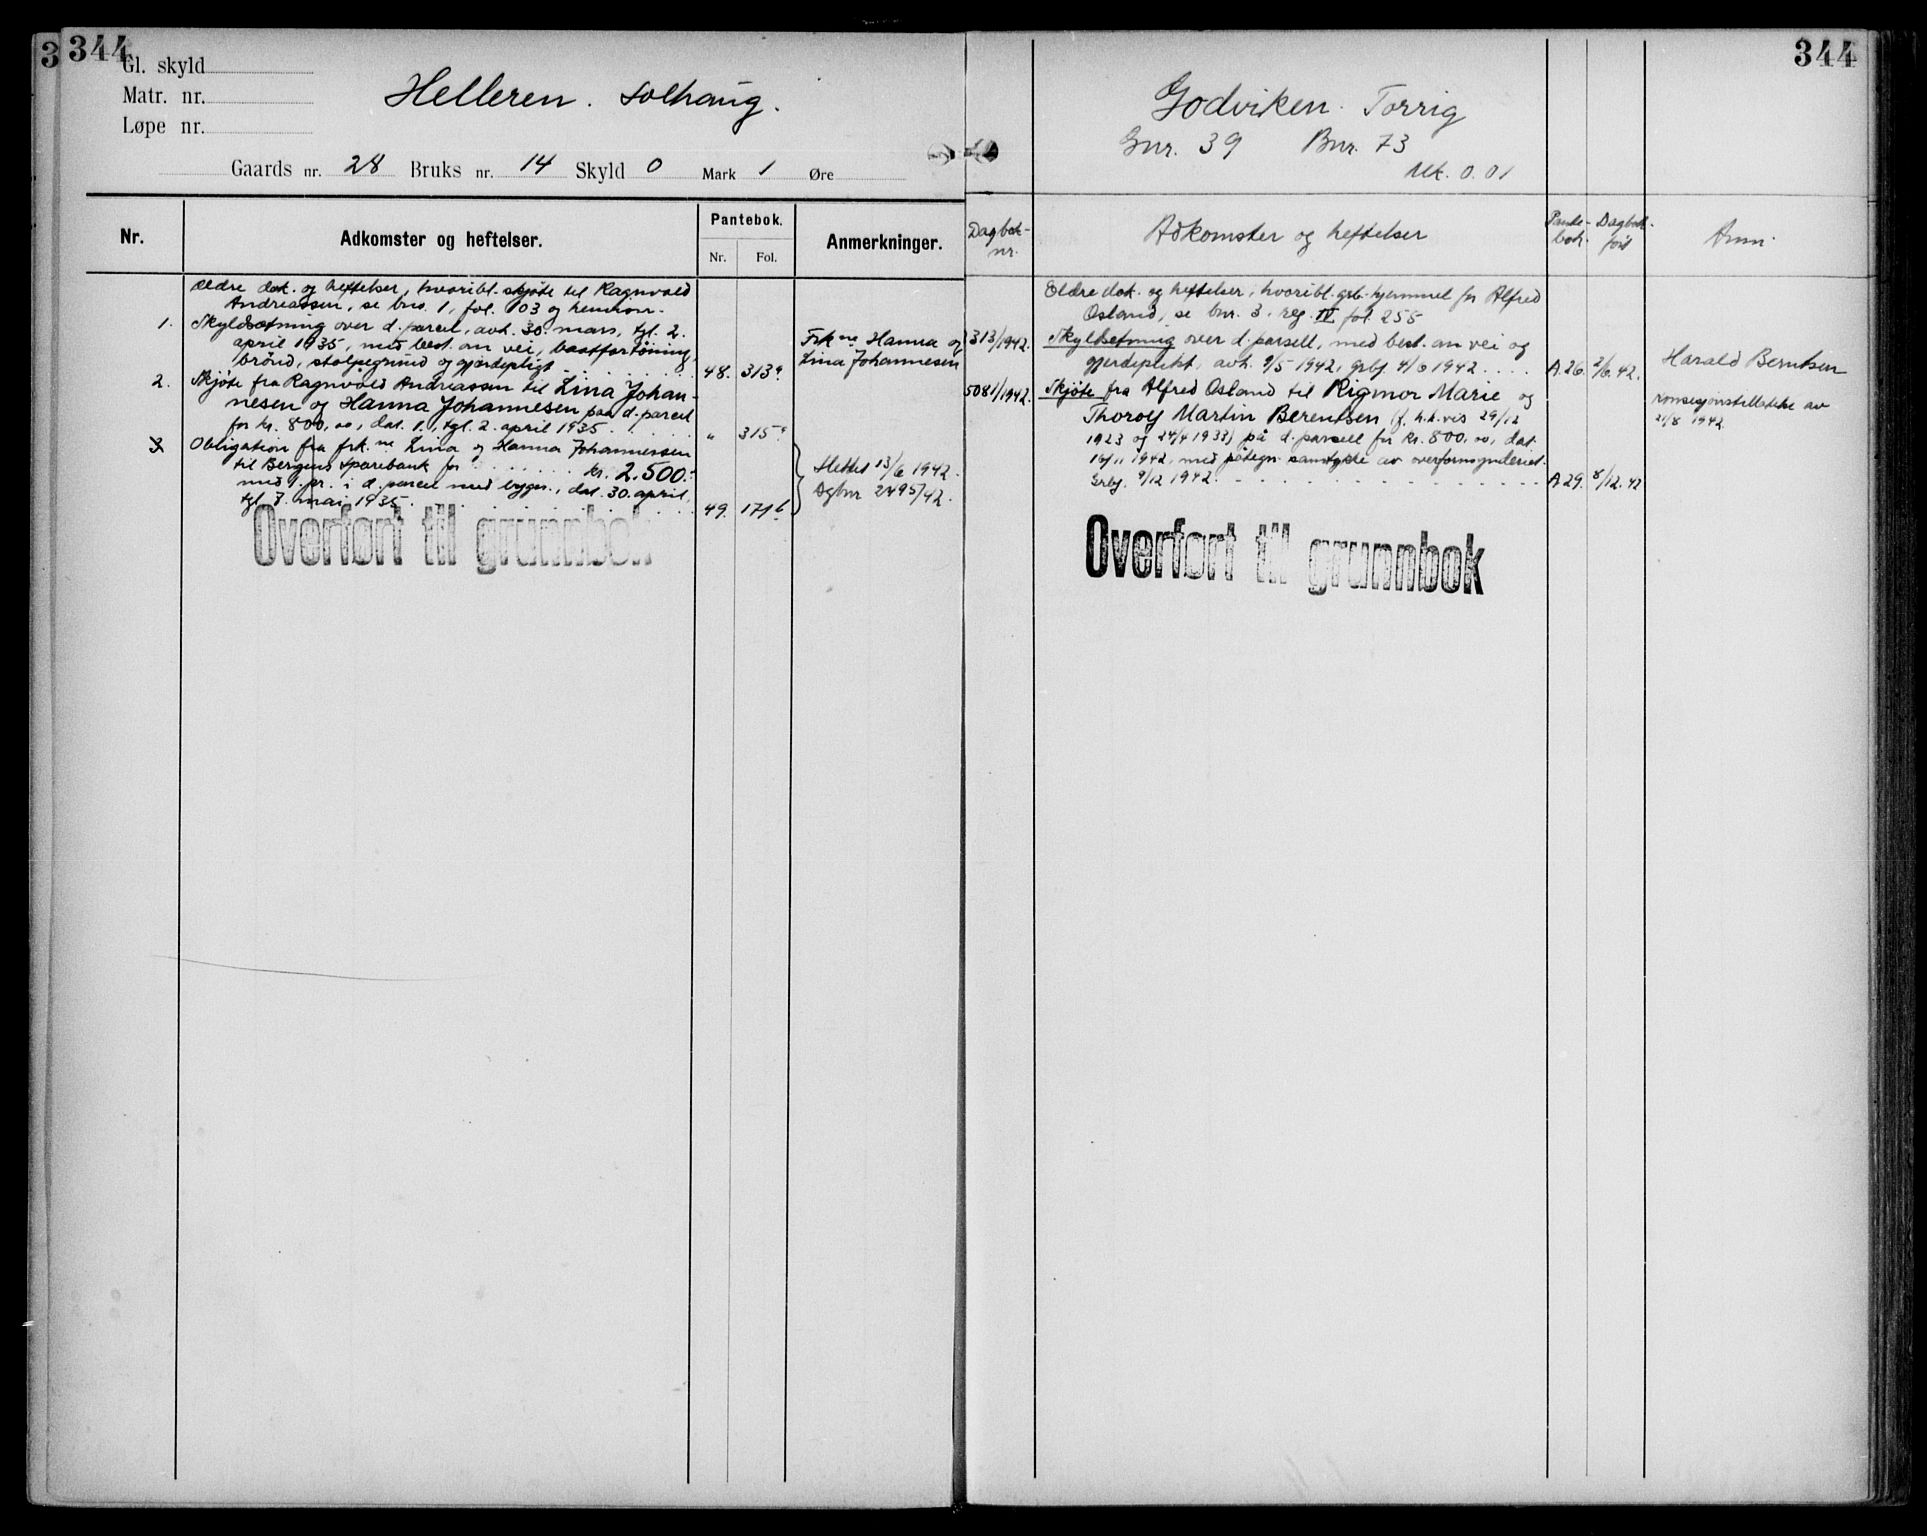 3
344
Gl. skyld
Matr. nr.
Løpe nr.
Helleren. Solhaug.
Gaards nr. 28 Bruks nr. 14 Skyld 0 Mark 1 Øre
Nr.
Adkomster og heftelser.
Pantebok.
Nr. Fol.
Anmerkninger.
Ældre dok. og heftelser, hvoribl. skjøte til Ragnvald
Andreassen, se bno. 1, fol. 103 og
1. Skyldsætning over d. parcel, avh. 30. mars, tgl. 2.
april 1935, med best. om vei, baatfortøining,
brønd, stolpegrund og gjerdepligt 48. 313a
Frkne Hanna og
Lina Johannesen
2. Skjøte fra Ragnvald Andreassen til Lina Johan-
nesen og Hanna Johannesen paa d. parcel
for kr. 800,00, dat. 1., tgl. 2. april 1935. " 315a
3. Obligation fra frk.ne Lina og Hanna Johannessen
til Bergens Sparebank for kr. 2.500.-
med 1. pr. i d. parcel med bygn., dat. 30. april,
tgl. 3. mai 1935. 49. 171b
Slettet 13/6 1942.
Dgbnr 2495/42.
Overført til grunnbok
344
Godviken. Torrig
Gnr. 39 Bnr. 73
Mk. 0.01
Dagbok-
nr.
Adkomster og heftelser
Pante-
bok.
Dagbok-
ført
Anm.
Eldre dok. og heftelser, hvoribl. grb. hjemmel for Alfred
Osland, se bnr. 3, reg. IV fol. 255
2313/1942. Skyldsetning over d. parsell, med best. om vei og
gjerdeplikt, avh. 9/5 1942, grbf. 4/6 1942 A.26. 2/6. 42.
Harald Berntsen
konsesjonstillatelse av
21/8 1942
5081/1942. Skjøte fra Alfred Osland til Rigmor Marie og
Thorolf Martin Berentsen (f. h.h.vis 29/12
1923 og 24/4 1933) på d. parsell for kr. 800,00, dat.
16/11 1942, med påtegn. samtykke av overformynderiet.
Grbf. 9/12 1942. A 29. 8/12. 42
Overført til grunnbok